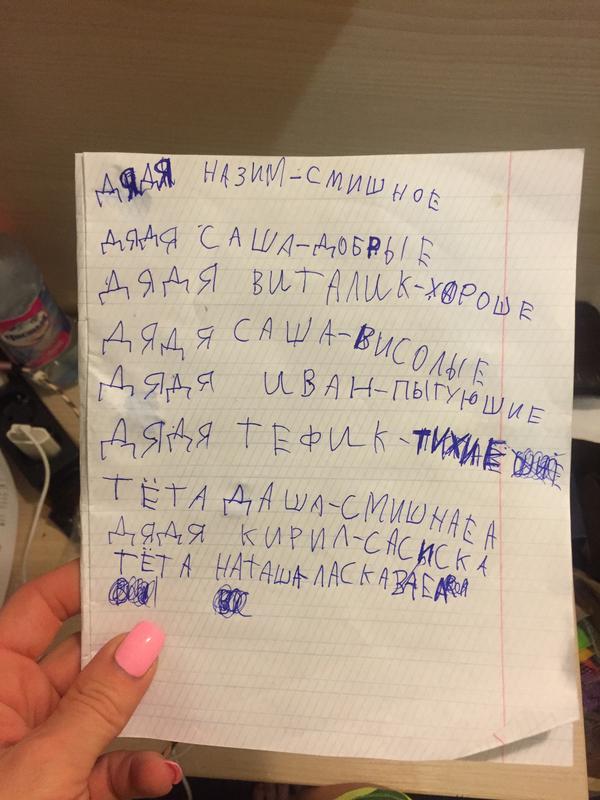 ДЯДЯ НАЗИМ-СМИШНОЕ
ДЯДЯ САША-ДОБРЫЕ
ДЯДЯ ВИТАЛИК-ХОРОШЕ
ДЯДЯ САША-ВИСОЛЫЕ
ДЯДЯ ИВАН-ПЫГУЮШИЕ
ДЯДЯ ТЕФИК-ТИХИЕ
ТЁТА ДАША-СМИШНАЕА
ДЯДЯ КИРИЛ-САСИСКА
ТЁТА НАТАША ЛАСКАВАЕА